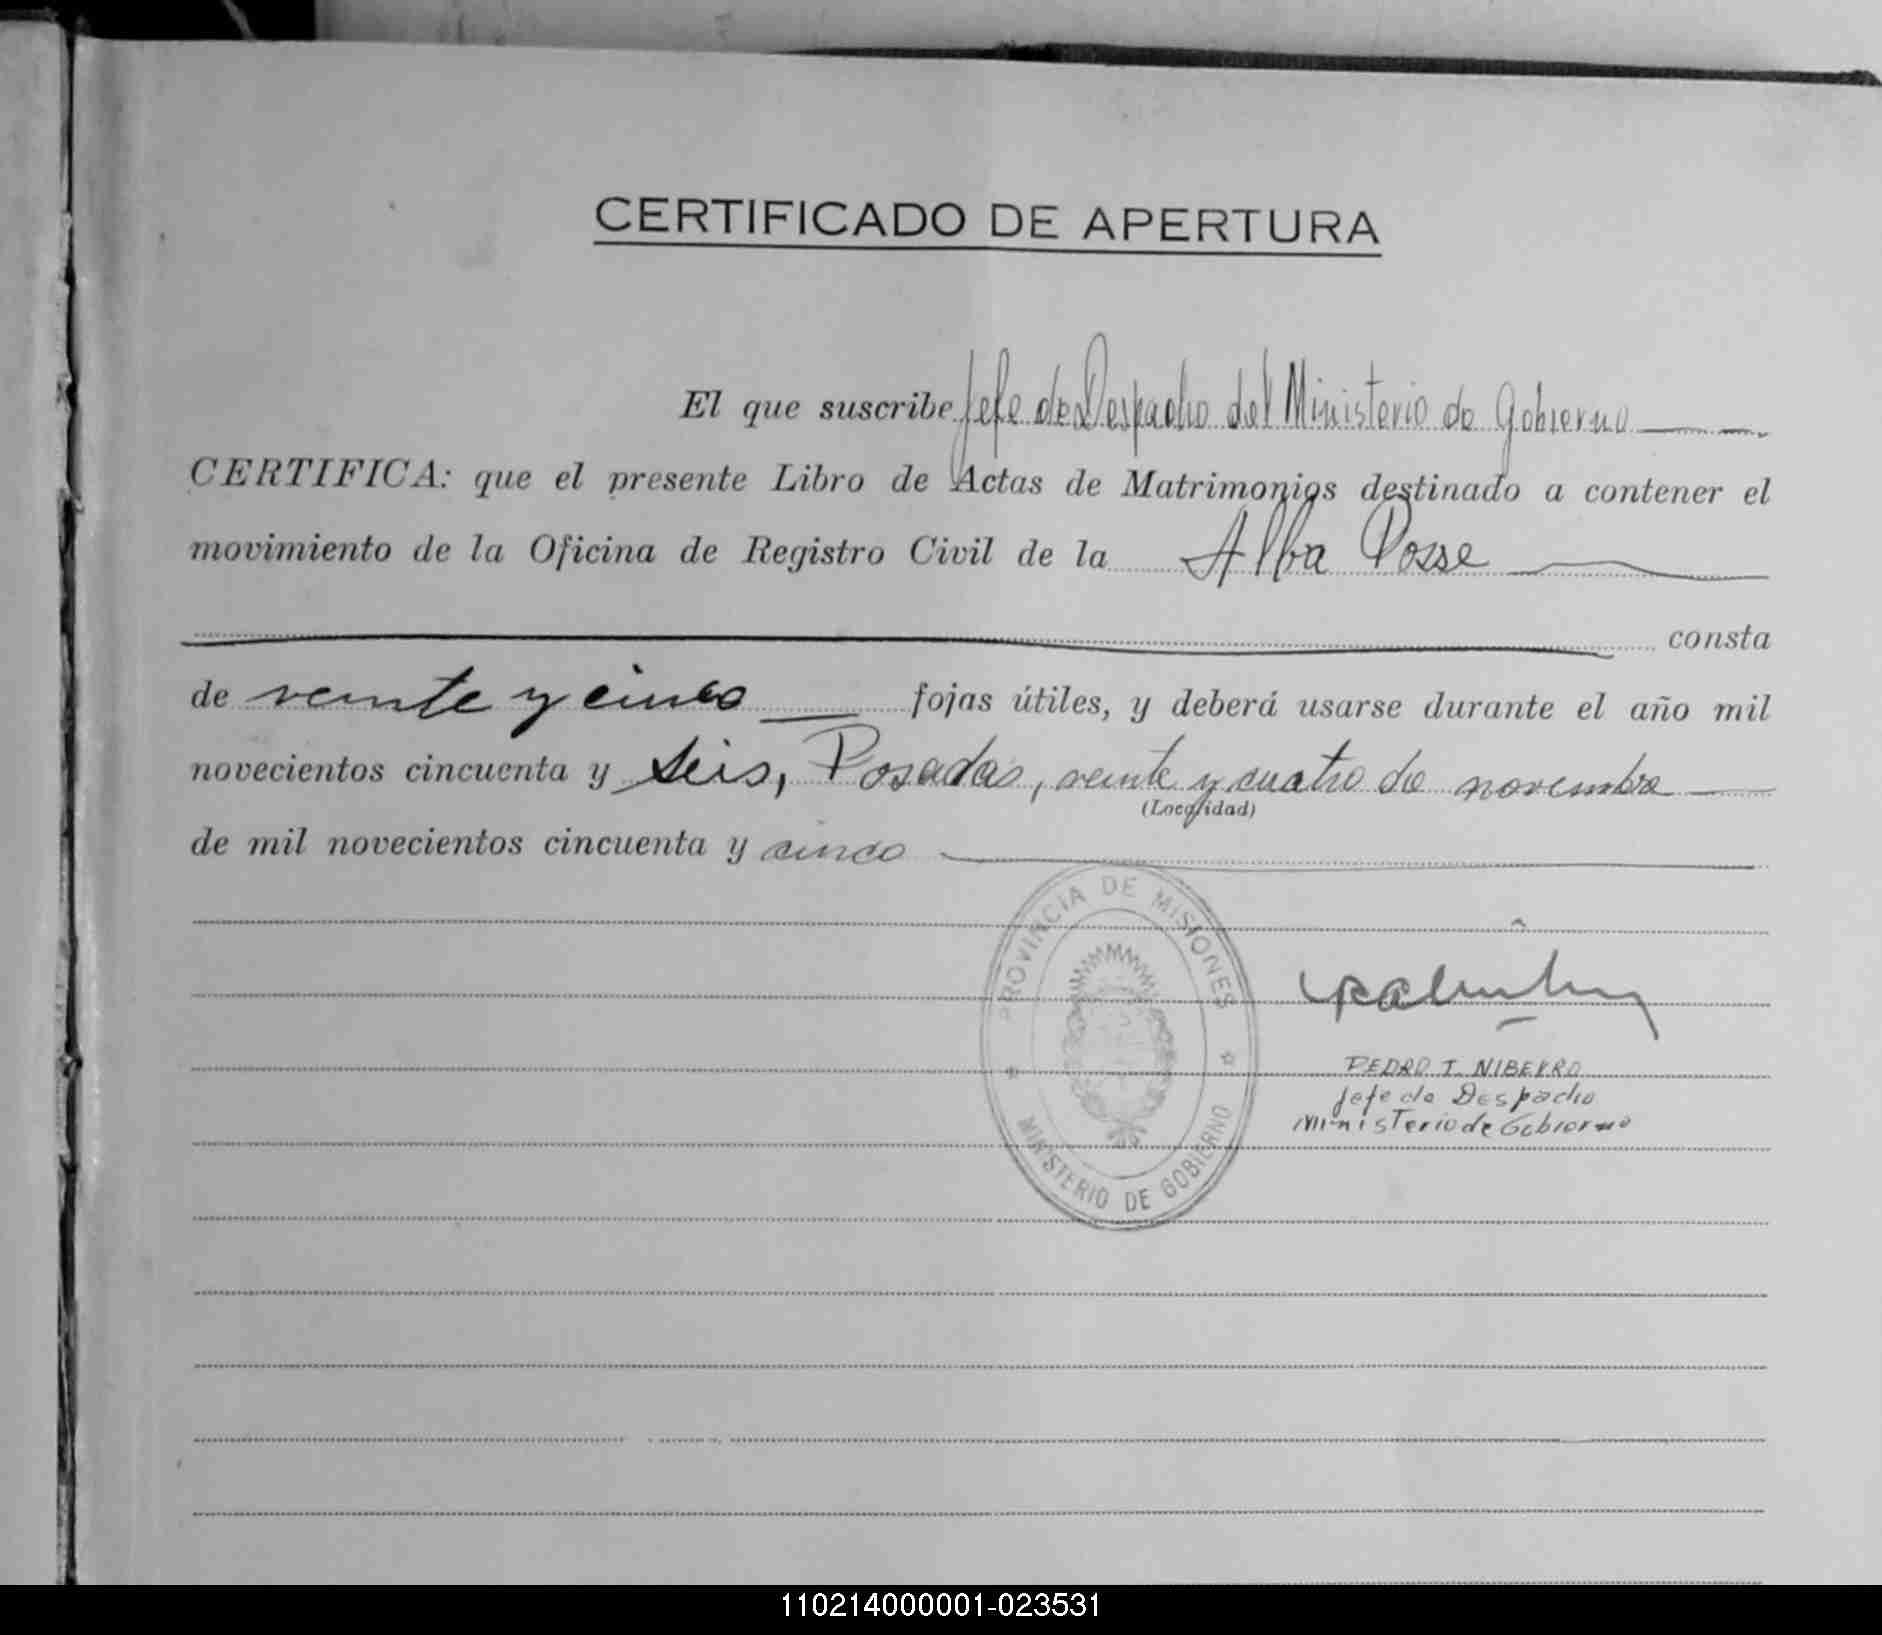 CERTIFICADO DE APERTURA
El que suscribe Jefe de Despacho del Ministerio de Gobierno
CERTIFICA: que el presente Libro de Actas de Matrimonios destinado a contener el
movimiento de la Oficina de Registro Civil de la Alba Posse
consta
de veinte y cinco fojas útiles, y deberá usarse durante el año mil
novecientos cincuenta y seis, Posadas, veinte y cuatro de novembre
(Localidad)
de mil novecientos cincuenta y cinco
PROVINCIA DE MISIONES
MINISTERIO DE GOBIERNO
PEDRO T. NIBEYRO
Jefe de Despacho
Ministerio de Gobierno
110214000001-023531